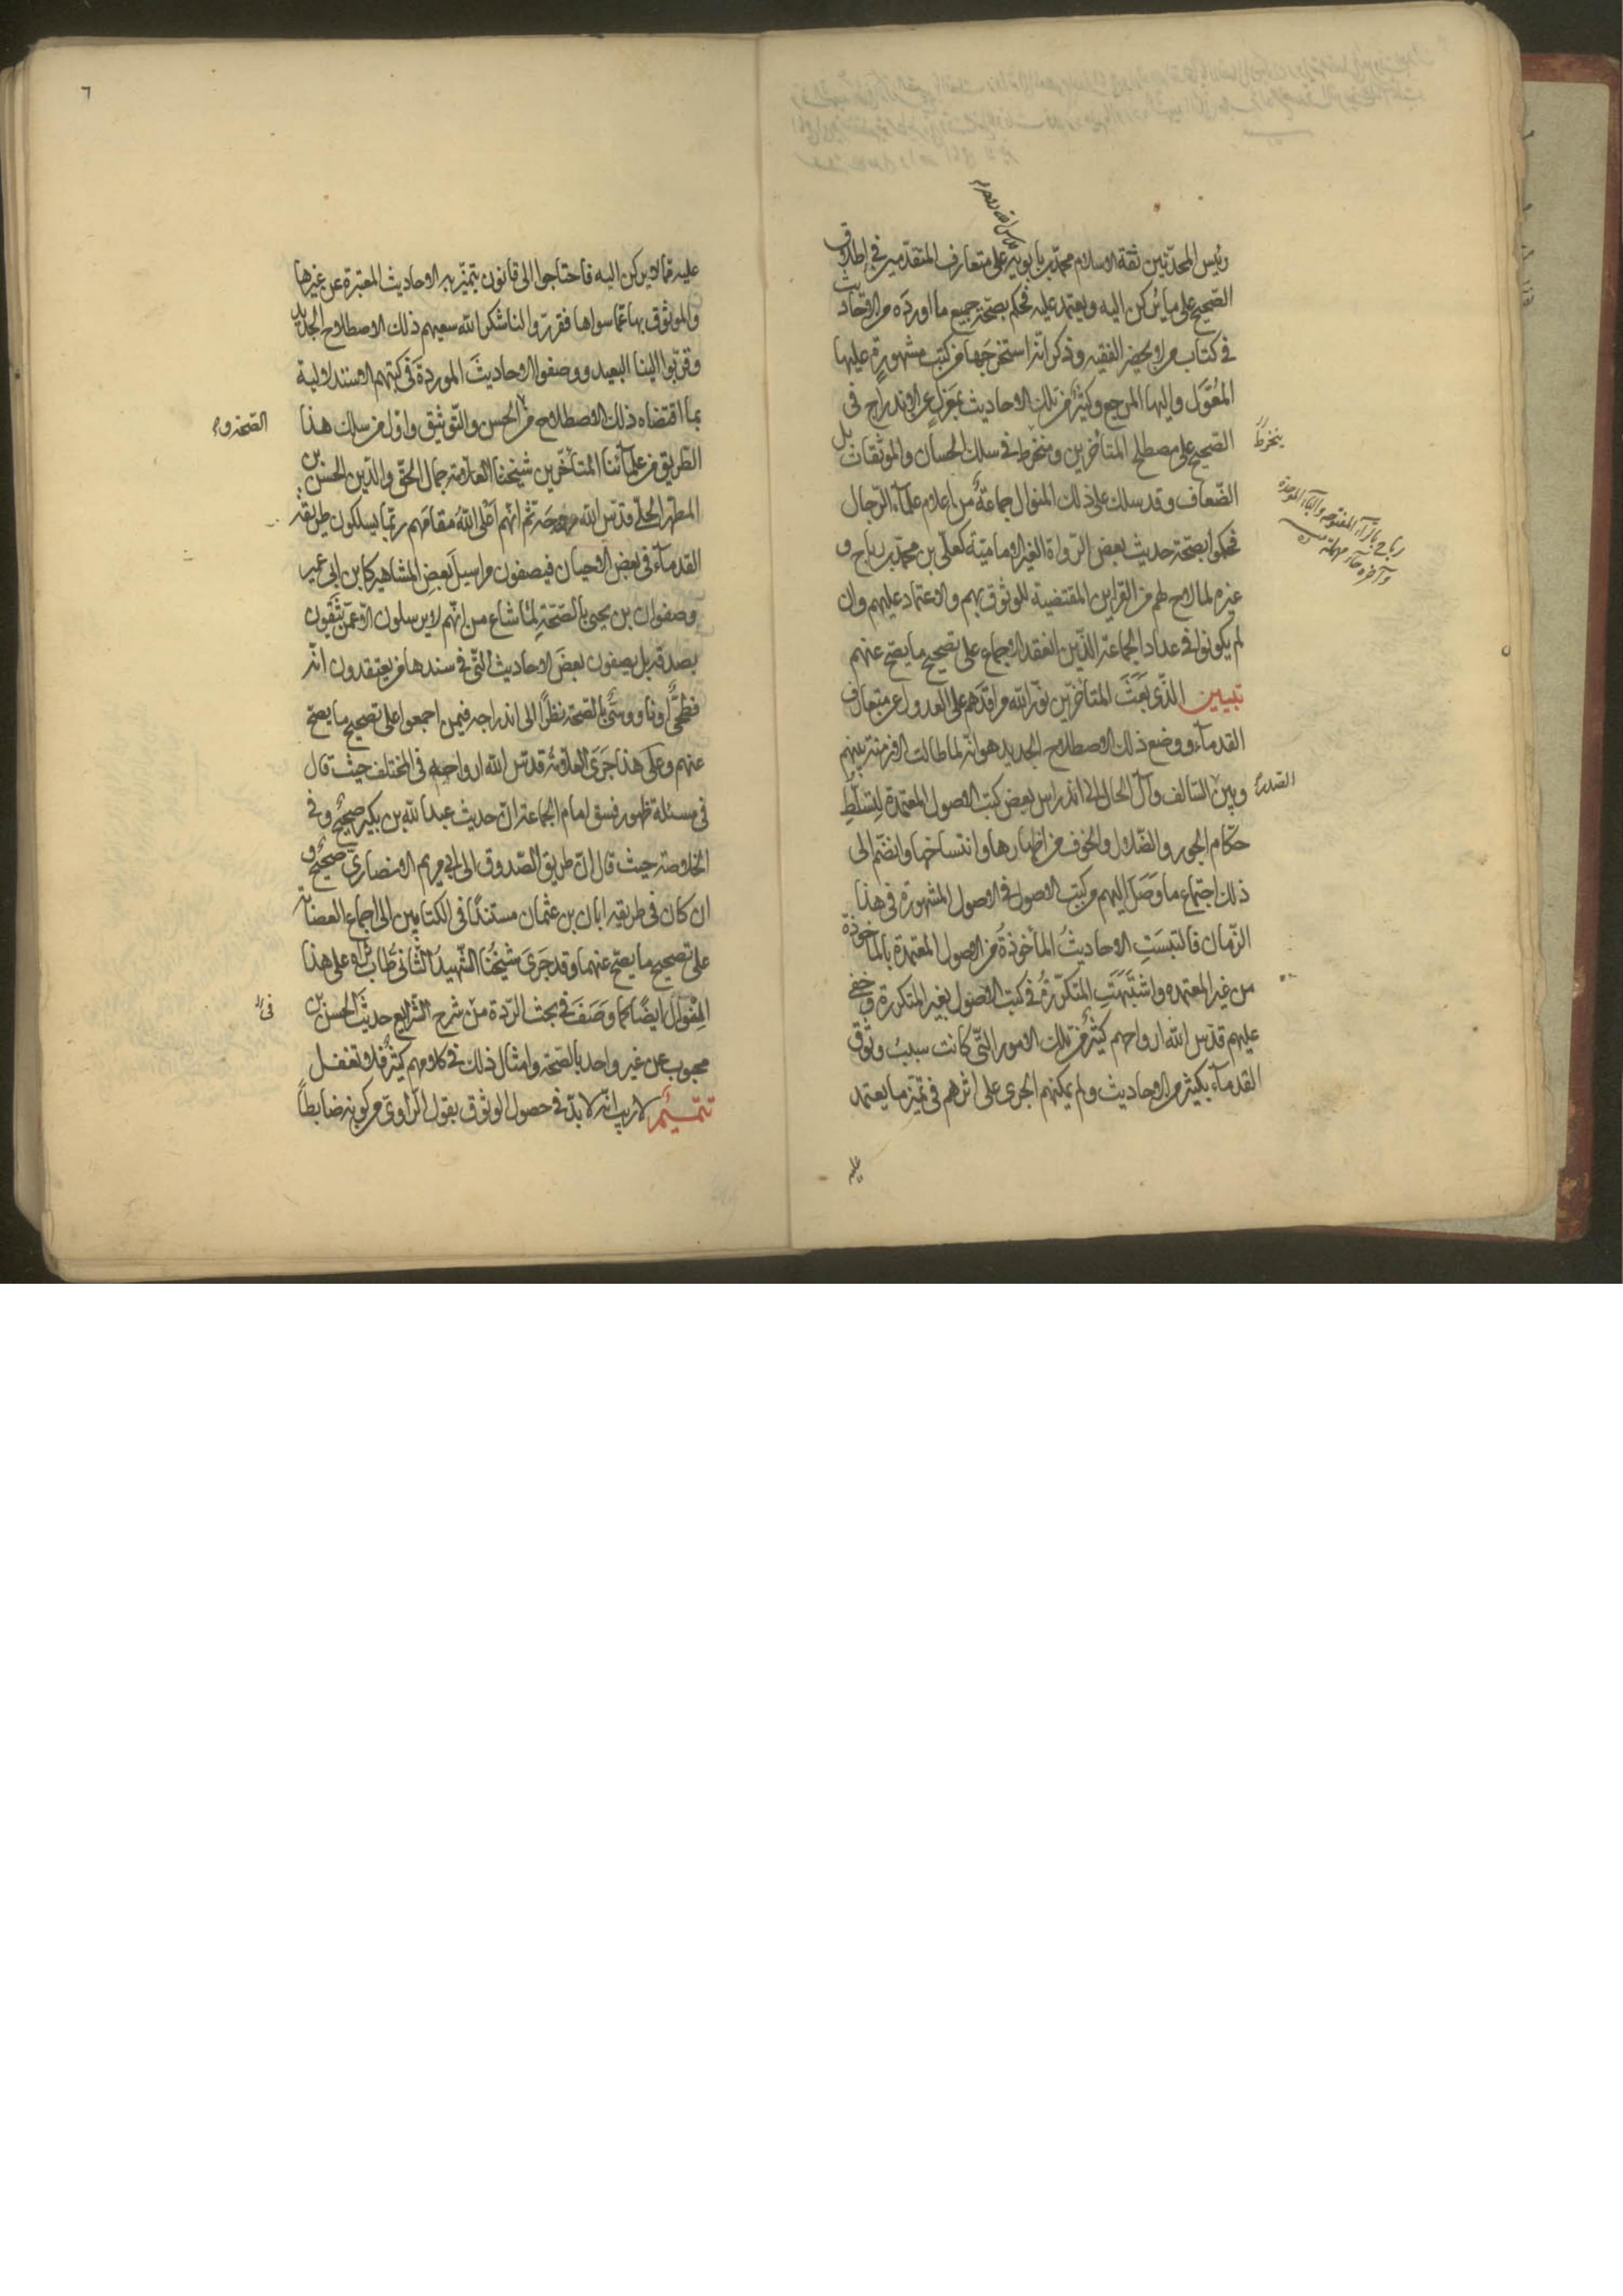 رئيس المحدثين ثقة الاسلام محمد بن بابويه على متعارف المتقدمين في اطلاق
الصحيح على ما يركن اليه ويعتمد عليه فحكم بصحة جميع ما اورده من الاحاديث
في كتاب من لا يحضر الفقيه وذكر انه استخرجها من كتب مشهورة عليها
المعوّل واليها المرجع وكثير من تلك الاحاديث بمعزل عن الاندراج في
الصحيح على مصطلح المتأخرين ومنخرط في سلك الحسان والموثقات بل
الضعاف وقد سلك على ذلك المنوال جماعة من اعلام علماء الرجال
فحكموا بصحة حديث بعض الرواة الغير الامامية كعلي بن محمد بن رباح و
غيره لما لاح لهم من القراين المقتضية للوثوق بهم والاعتماد عليهم وان
لم يكونوا في عداد الجماعة الذين انعقد الاجماع على تصحيح ما يصح عنهم
تبيين الذي بَعَثَ المتأخرين نوّر الله مراقدهم على العدول عن متعارف
القدماء ووضع ذلك الاصطلاح الجديد هو انه لما طالت الازمنة بينهم
وبين السالف وآل الحال الى اندراس بعض كتب الاصول المعتمدة لتسلط
حكام الجور والضلال والخوف من اظهارها وانتساخها وانضم الى
ذلك اجتماع ما وصل اليهم من كتب الاصول في الاصول المشهورة في هذا
الزمان فالتبست الاحاديث المأخوذة من الاصول المعتمدة بالمأخوذة
من غير المعتمده واشتبهت المتكررة في كتب الاصول بغير المتكررة وخفي
عليهم قدس الله ارواحهم كثير من تلك الامور التي كانت سبب وثوق
القدماء بكثير من الاحاديث ولم يمكنهم الجري على اثرهم في تميز ما يعتمد
عليه
ينخرط
رباح بالراء المفتوحه والباء الموحدة
وآخره حاء مهملة
الصدر
٦
عليه مما لا يركن اليه فاحتاجوا الى قانون يتميز به الاحاديث المعتبرة عن غيرها
والموثوق بها عما سواها فقرروا لنا شكر الله سعيهم ذلك الاصطلاح الجديد
وقربوا الينا البعيد ووصفوا الاحاديث الموردة في كتبهم الاستدلالية
بما اقتضاه ذلك الاصطلاح من الحسن والتوثيق واول من سلك هذا
الطريق من علمائنا المتأخرين شيخنا العلامة جمال الحق والدين الحسن بن
المطهر الحلي قدس الله روحه ثم انهم اعلى الله مقامهم ربما يسلكون طريقة
القدماء في بعض الاحيان فيصفون مراسيل بعض المشاهير كابن ابي عمير
وصفوان بن يحيى بالصحة لما شاع من انهم لا يرسلون الا عمن يثقون
بصدقه بل يصفون بعض الاحاديث التي في سندها من يعتقدون انه
فطحي او ناووسي بالصحة نظرا الى اندراجه فيمن اجمعوا على تصحيح ما يصح
عنهم وعلى هذا جرى العلامة قدس الله ارواحهم في المختلف حيث قال
في مسئلة ظهور فسق امام الجماعة ان حديث عبد الله بن بكير صحيح وفي
الخلاصة حيث قال ان طريق الصدوق الى ابي مريم الانصاري صحيح و
ان كان في طريقه ابان بن عثمان مستندا في الكتابين الى اجماع العصابة
على تصحيح ما يصح عنهما وقد جرى شيخنا الشهيد الثاني طاب ثراه على هذا
المنوال ايضا كما وصف في بحث الردة من شرح الشرايع حديث الحسن بن
محبوب عن غير واحد بالصحة وامثال ذلك في كلامهم كثير فلا تغفل
تتميم لا ريب انه لا بد في حصول الوثوق بقول الراوي من كونه ضابطاً
الصحة و
في